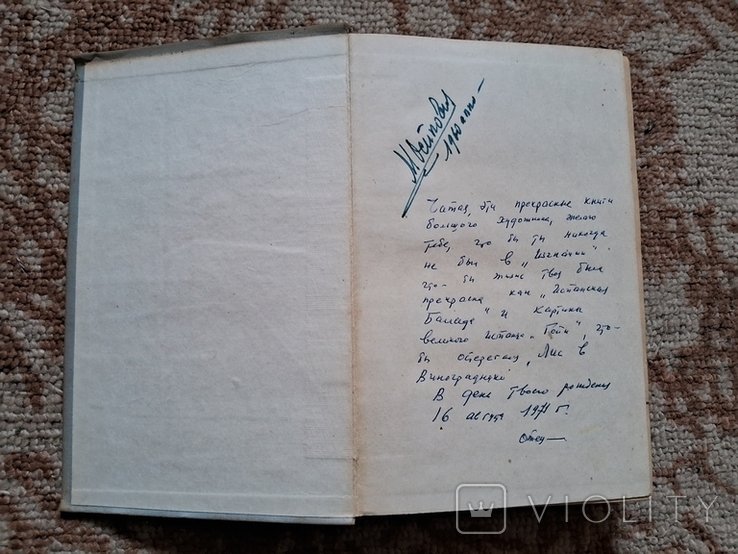 1960
Читая, эти прекрасные книги
большого художника, желаю
тебе, что бы ты никогда
не был в „Изгнании"
что-бы жизнь твоя была
прекрасна как „Испанская
Балада" и картины
великого испанца „Гойи", что-
бы остерегался „Лис в
Винограднике"
В день твоего рождения
16 августа 1971 г.
Отец—
VIOLITY